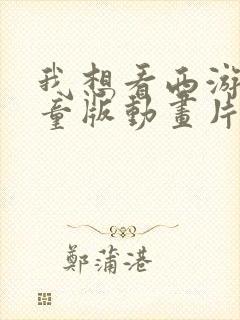 我想看西游
童版動畫片
鄭蒲港